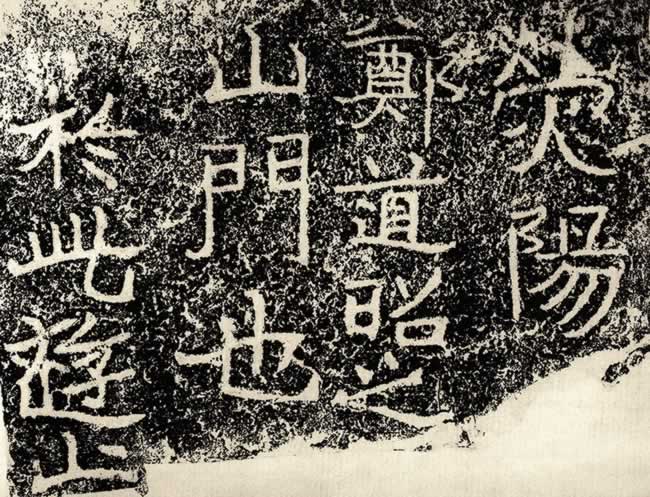 荧陽
鄭道昭之
山門也
於此遊止